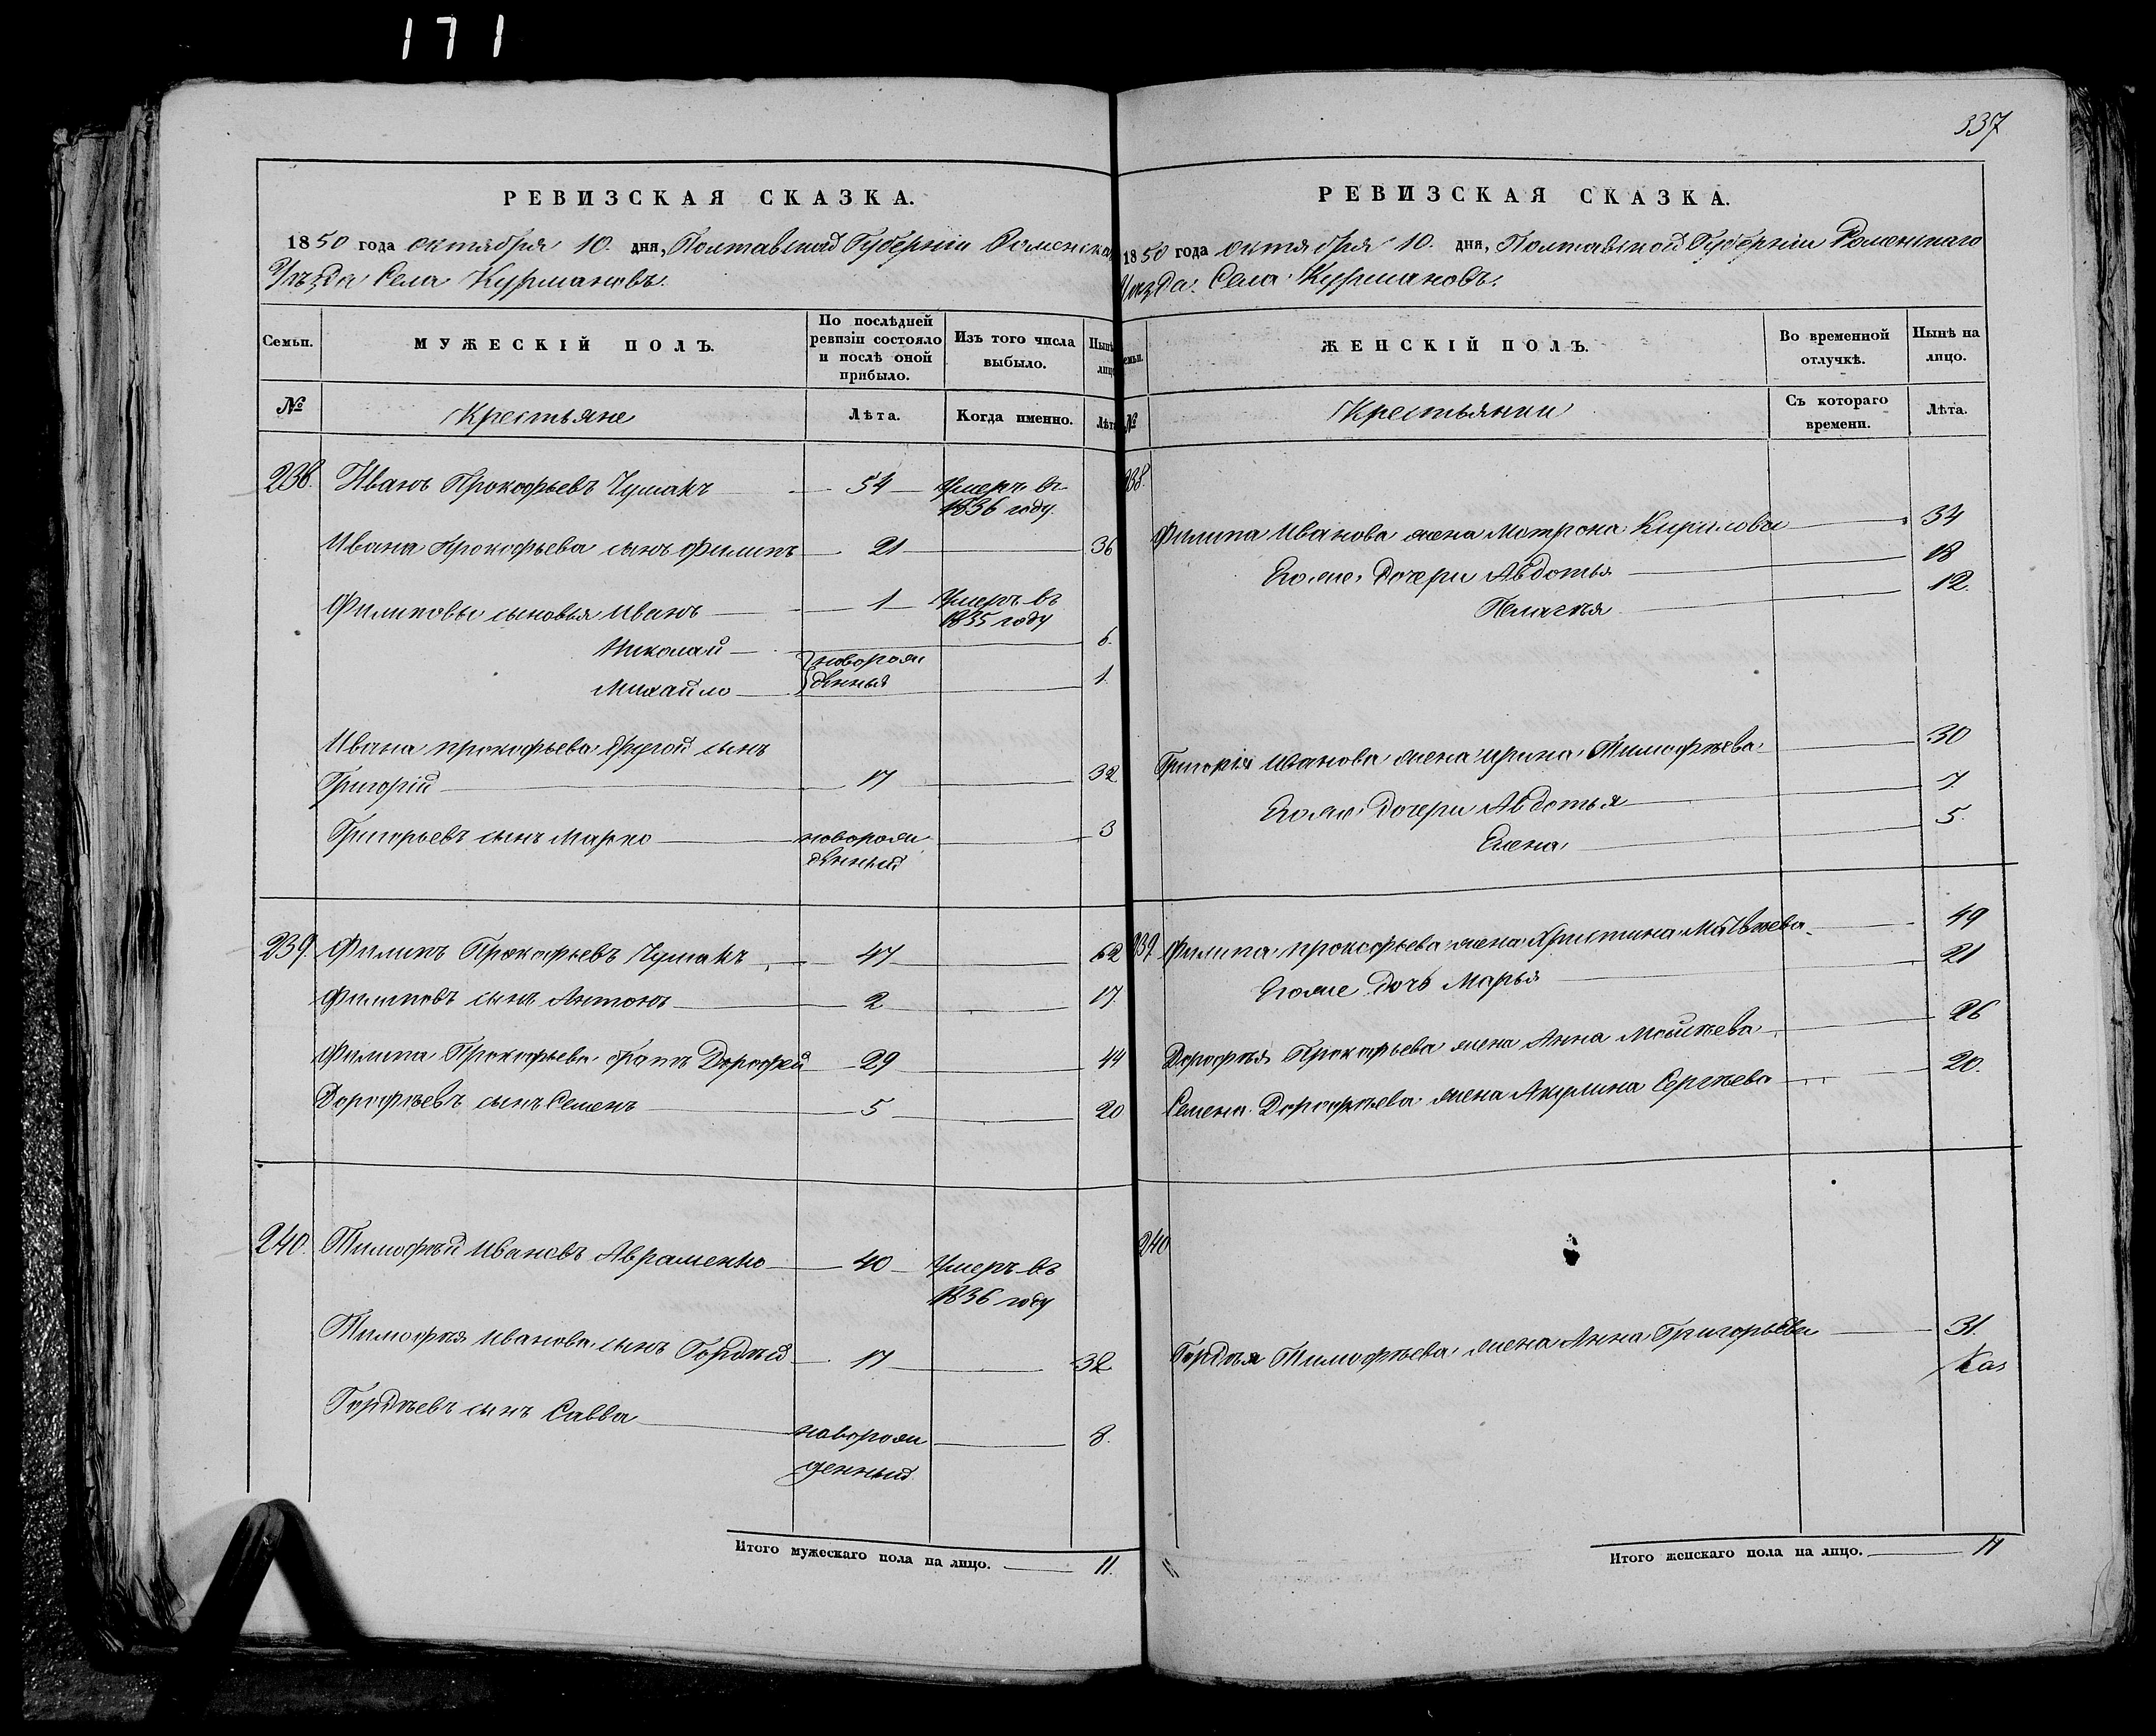 171
337
РЕВИЗСКАЯ СКАЗКА.
1850 года октября 10. дня, Полтавской Губерніи Роменска
Уѣзда Села Курмановъ.
Семьи.
МУЖЕСКІЙ ПОЛЪ.
По послѣдней
ревизіи состояло
и послѣ оной
прибыло.
Изъ того числа
выбыло.
Нынѣ
лицо
№
Крестьяне
Лѣта.
Когда именно.
Лѣта
238. Иванъ Прокофьевъ Чумакъ 54 Умеръ въ
1836 году.
Ивана Прокофьева сынъ Филипъ 21 36
Филиповы сыновья Иванъ 1 Умеръ въ
1835 году
Николай 6.
новорож
Михайло денныя 1.
Ивана Прокофьева другой сынъ
Григорій 17 32
Григорьевъ сынъ Марко новорож 3
денный
239. Филипъ Прокофьевъ Чумакъ 47 62
Филиповъ сынъ Антонъ 2 17
Филипа Прокофьева братъ Дорофей 29 44
Дорофѣевъ сынъ Семенъ 5 20
240. Тимофѣй Ивановъ Авраменко 40 Умеръ въ
1836 году
Тимофѣя Иванова сынъ Гордѣй 17 32
Гордѣевъ сынъ Савва
новорож 8.
денный
Итого мужескаго пола на лицо. 11.
РЕВИЗСКАЯ СКАЗКА.
1850 года октября 10. дня, Полтавской Губерніи Роменскаго
Уѣзда Села Курмановъ.
семьи.
ЖЕНСКІЙ ПОЛЪ.
Во временной
отлучкѣ.
Нынѣ на
лицо.
№
Крестьянки
Съ котораго
времени.
Лѣта.
238.
Филипа Иванова жена Матрона Кирилова 34
Егоже Дочери Авдотья 18
Пелагѣя 12.
Григорія Иванова жена Ирина Тимофѣева 30
Егоже Дочери Авдотья 7.
Елена 5.
239. Филипа Прокофьева жена Христина Матвѣева 49
Егоже Дочь Марья 21
Дорофѣя Прокофьева жена Анна Моисѣева 26
Семена Дорофѣева жена Акулина Сергѣева 20.
240
Гордѣя Тимофѣева жена Анна Григорьева 31.
Каз
Итого женскаго пола на лицо. 11